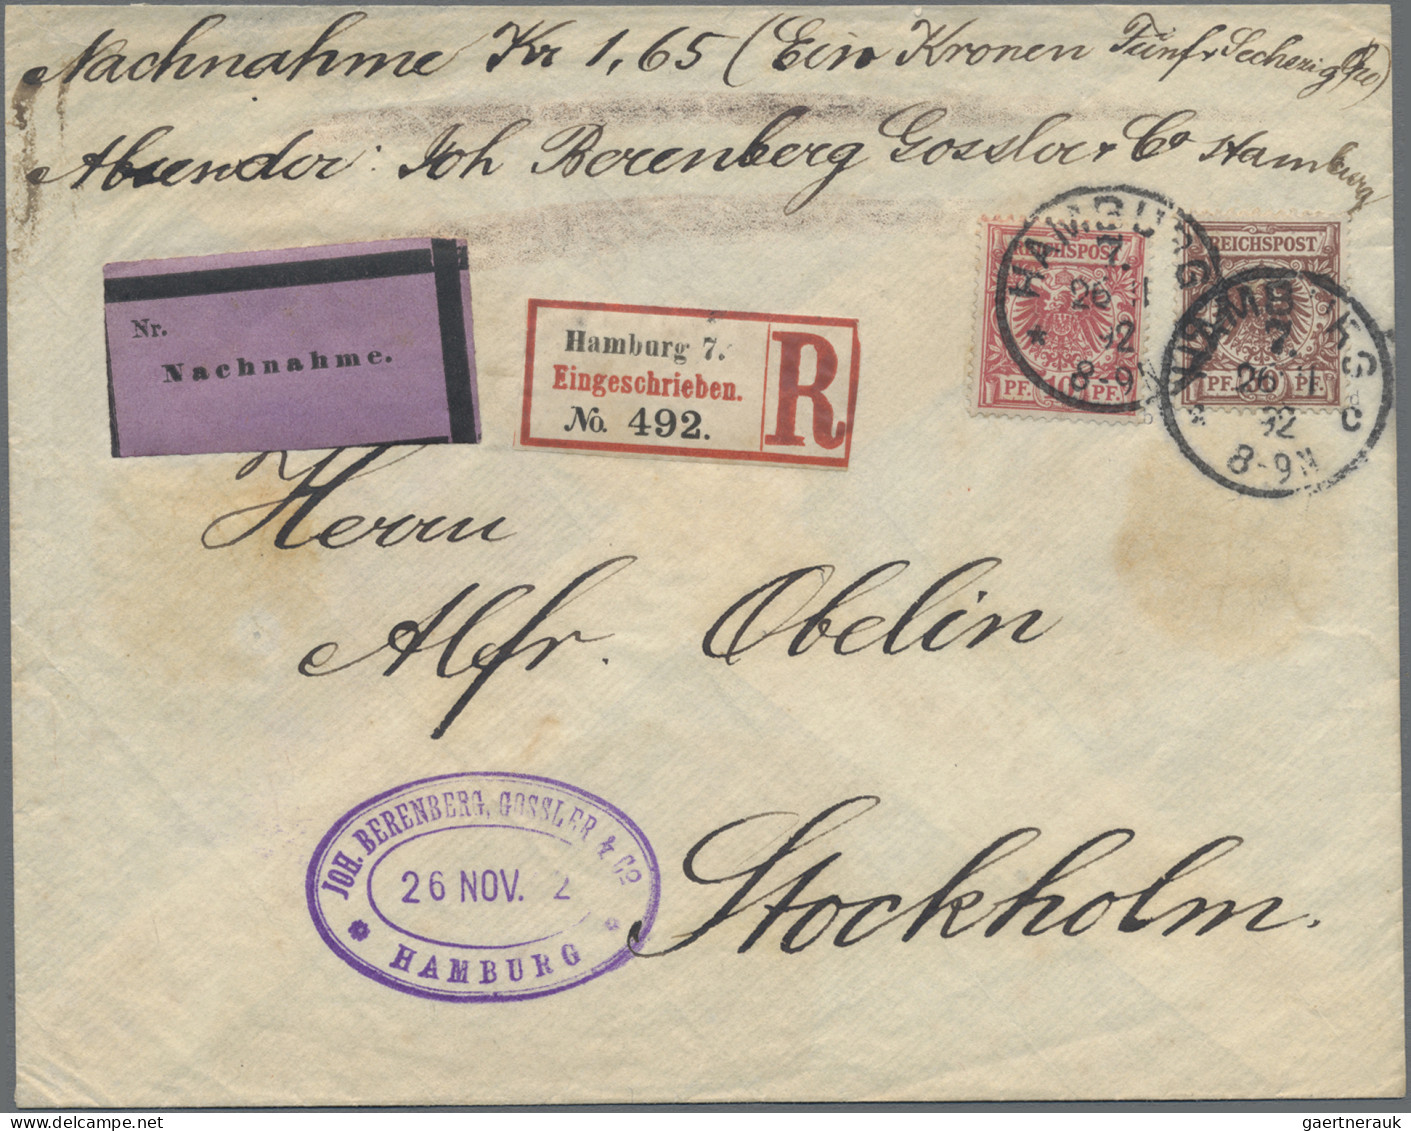 Nachnahme Kr 1,65 (Ein Kronen Fünf + Sechzig Öre)
Absender: Joh Berenberg Gossler + Co Hamburg
Nr.
Nachnahme.
Hamburg 7.
Eingeschrieben.
No. 492.
R
REICHSPOST
10
PF. PF.
HAMBURG
7.
26 11
92
8-9N
REICHSPOST
PF. 50 PF.
HAMBURG
7.
26 11
92
8-9N
Herrn
Alfr. Obelin
Stockholm.
JOH. BERENBERG, GOSSLER & Co
26 NOV. 2
HAMBURG
gaertnerauk